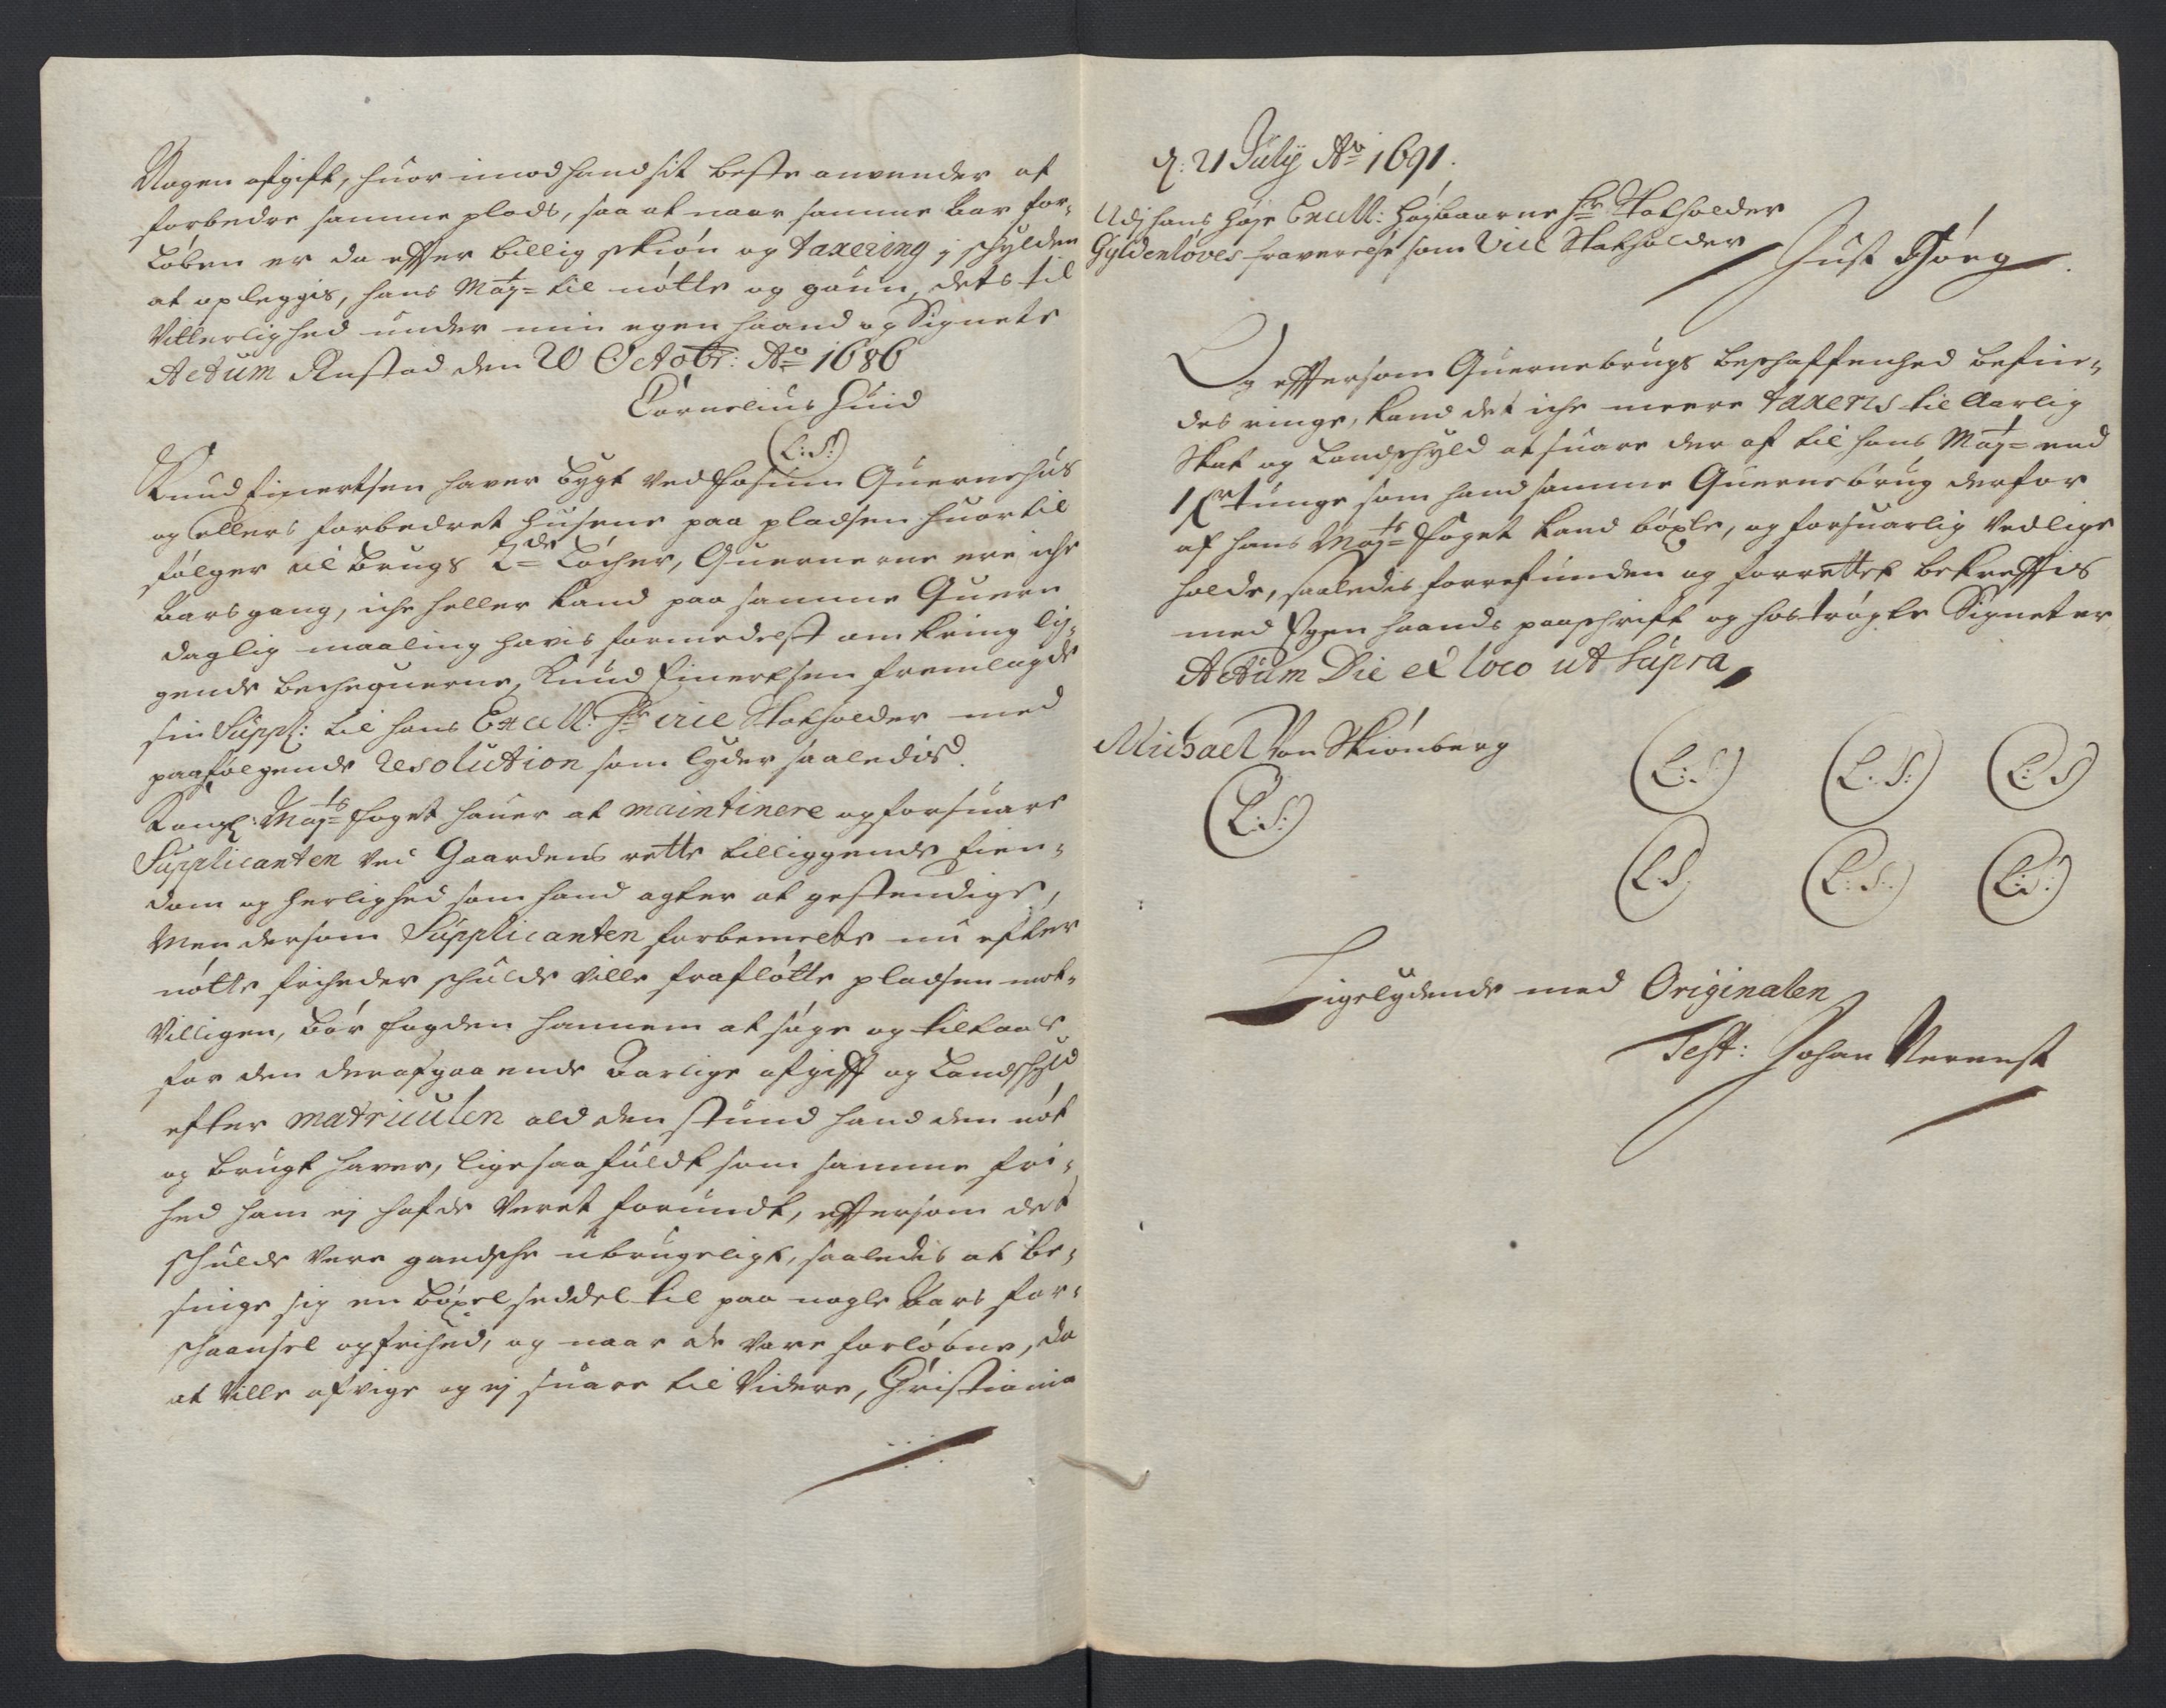 Nogen afgift, huor imod hand sit beste anvender at
forbedre samme plads, saa at naar samme Aar for-
Løben er da effter billig skiøn og taxering j schylden
at opleggis, hans Maÿ:t til nøtte og gaun, dets til
Vitterlighed under min egen haand og Signete
Actum Rustad den 20 Octobr: Aō 1686
Cornelius Huid
(L:S:)
Knud Einertsen haver bygt ved Fossum Quernehus
og ellers forbedret husene paa pladsen huortil
følger til brugs 2de Løcher, Quernerne ere iche
Aarsgang, iche heller kand paa samme Quern
daglig maaling havis formedelst omkring lig-
gende bechequerne, Knud Einertsen fremlagde
sin Suppl: til hans Excell: Hr vice Statholder med
paafølgende resolution som lyder saaledis.
Kongl: Maÿ:ts foget hauer at maintinere og forsuare
Supplicanten ved Gaardens rette tilliggende Eien-
dom og herlighed som hand agter at gestendige,
Men dersom Supplicanten forbemelte nu efter
nøtte friheder schulde ville frafløtte pladsen mot-
villigen, bør fogden hannem at søge og tiltaale
for den derafgaaende Aarlige afgifft og Landschyld
efter matriculen ald den stund hand den nøt
og brugt haver, lige saa fuldt som samme fri-
hed ham ej hafde veret forundt, efftersom det
schulde vere gandsche ubrugeligt, saaledis at be-
tinge sig en bøxel seddel til paa nogle Aars for-
schaansel og frihed, og naar de vare forløbne, da
at ville afvige og ej suare til videre, Christiania
d: 21 Julÿ Aō 1691.
Udj hans høje Excell: Høybaarne Hr Statholder
Gyldenløves fraverelse som Vice Statholder
Just Høeg
Og efftersom Quernebrugs beschaffenhed befin-
des ringe, kand det iche meere taxeris til Aarlig
Skat og Landschyld at suare der af til hans Maÿ:t end
1 tunge som hand samme Quernebrug derfor
af hans Maÿ:ts Foget kand bøxle, og forsuarlig vedlige
holde, saaledis forrefunden og forrettet bekrefftis
med Egen haands paaschrift og hostrøgte Signeter
Actum Die et loco ut Supra,
Michael Von Skiønberg
(L:S:)
(L:S:) (L:S:) (L:S)
(L:S:) (L:S:) (L:S:)
Ligelydende med Originalen
Test: Johan Nerenst